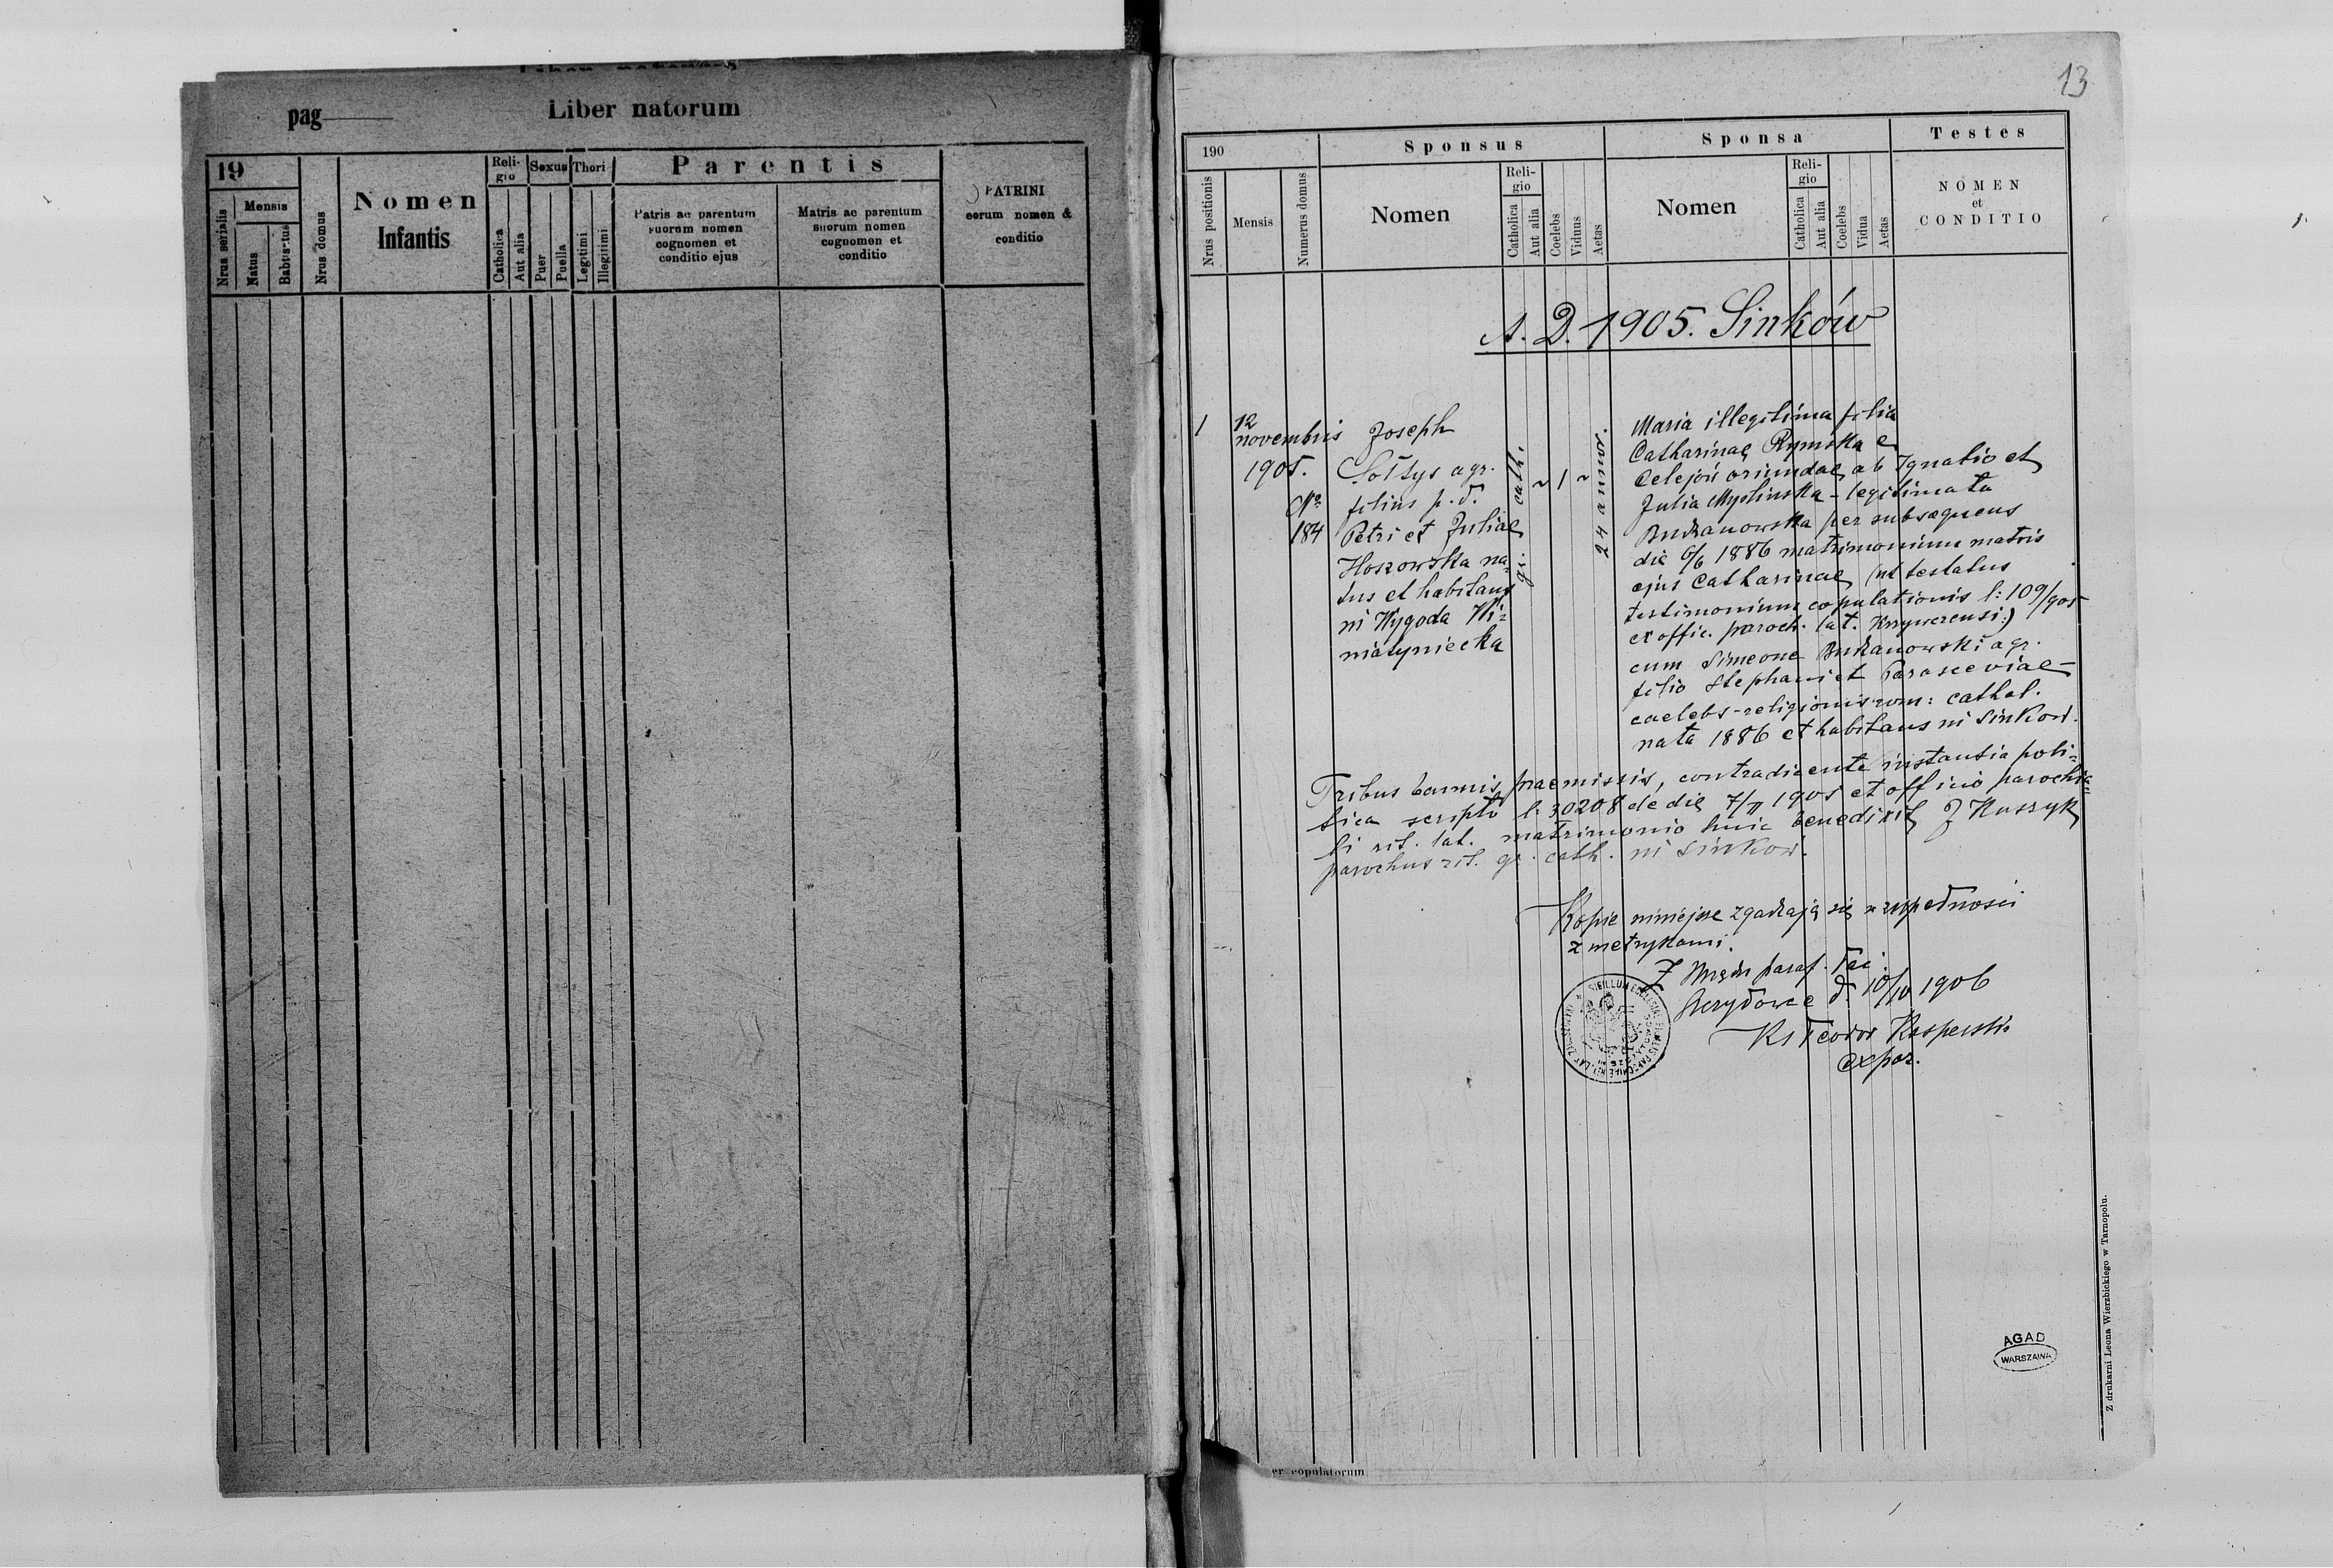 Liber natorum
pag
Liber natorum
19
Mensis
Nrus serialis
Natus
Babtisatus
Nrus domus
Nomen
Infantis
Reli-
gio
Catholica
Aut alia
Sexus
Puer
Puella
Thori
Legitimi
Illegitimi
Parentis
Patris ac parentum
suorum nomen
cognomen et
conditio ejus
Matris ac parentum
suorum nomen
cognomen et
conditio
PATRINI
eorum nomen &
conditio
13
190
Nrus positionis
Mensis
Numerus domus
Sponsus
Nomen
Reli-
gio
Catholica
Aut alia
Coelebs
Viduus
Aetas
Sponsa
Nomen
Reli-
gio
Catholica
Aut alia
Coelebs
Vidua
Aetas
Testes
NOMEN
et
CONDITIO
A. D. 1905. Sinków
1
12
novembris
1905.
No
184
Joseph
Sołtys agr.
filius p. d.
Petri et Juliae
Hoszowska na-
tus et habitans
in Wygoda Wi-
niatyniecka
gr. cath.
1
24 annor.
Maria illegitima filia
Catharinae Rymska e
Celejów oriundae ab Ignatio et
Julia Myślinska - legitimata
Budzanowska per subsequens
die 6/6 1886 matrimonium matris
ejus Catharinae (ut testatus
testimonium copulationis l: 109/905
ex offic. paroch. lat. )
cum Simeone Budzanowski agr.
filio Stephani et Parasceviae -
caelebs - religionis rom: cathol.
nata 1886 et habitans in Sinkow.
Tribus bannis praemissis, contradicente instantia poli-
tica scripto l: 30208 de die 7/11 1905 et officio parochia-
li rit. lat. matrimonio huic benedixit J
parochus rit. gr. cath. in Sinkow.
Kopie niniejsze zgadzają się w zupełności
z metrykami.
Z Urzędu paraf. łac.
d. 10/IV 1906
Ks Teodor Kasperski
expoz.
AGAD
WARSZAWA
Z drukarni Leona Wierzbickiego w Tarnopolu.
er copulatorum